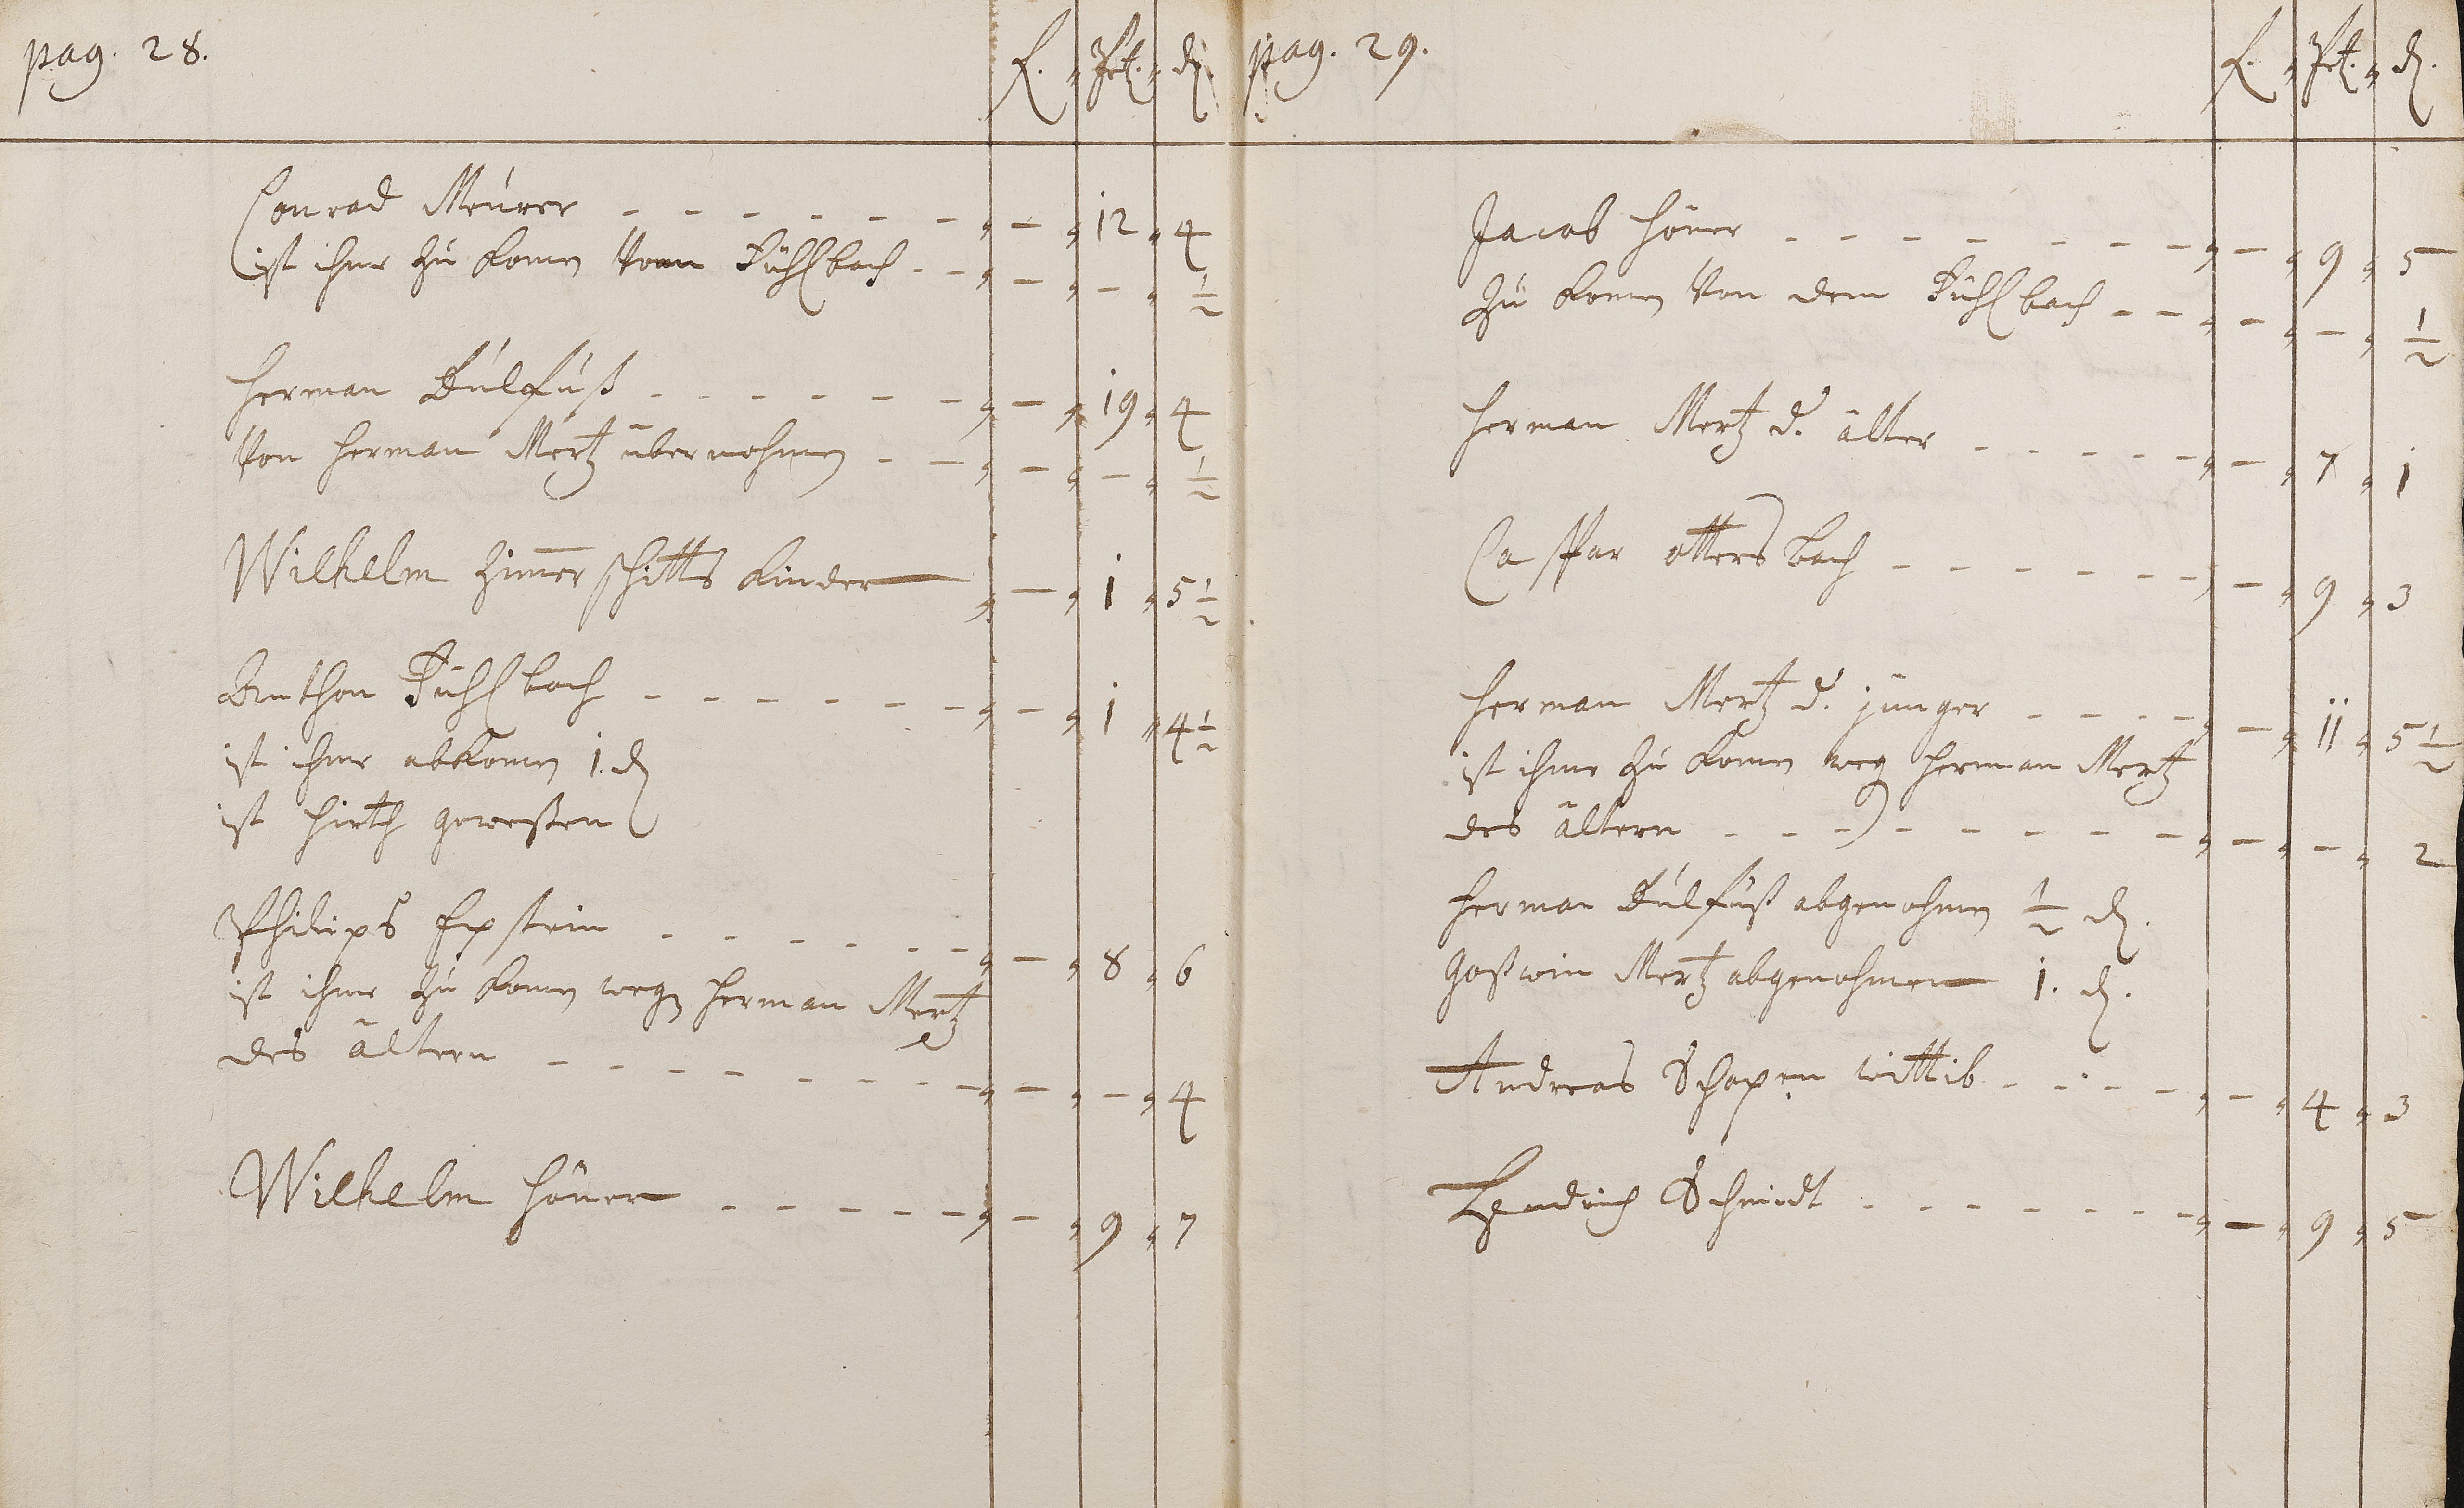 pag. 28.
f. " Pet. " d.
Conrad Meurer - - - - - - " - " 12 " 4
ist ihme zu komen Vom Dühlbach - - " - " - " ½
Herman Dulfuß - - - - - - " - " 19 " 4
Von Herman Mertz übernohmen - - " - " - " ½
Wilhelm Zimerschitts Kinder " - " 1 " 5½
Anthon Dühlbach - - - - - - " - " 1 " 4½
ist ihme abkomen 1. d
ist Hirth geweßen
Philips Epstein - - - - - - " - " 8 " 6
ist ihme zu komen wegen Herman Mertz
des ältern - - - - - - - - " - " - " 4
Wilhelm Höner - - - - - " - " 9 " 7
pag. 29.
f. " Pet. " d.
Jacob Höner - - - - - - - " - " 9 " 5
zu komen Von dem Dühlbach - - " - " - " ½
Herman Mertz d. älter - - - - - " - " 7 " 1
Caspar Ottersbach - - - - - - " - " 9 " 3
Herman Mertz d. jünger - - - - " - " 11 " 5½
ist ihme zu komen weg Herman Mertz
des ältern - - - - - - - - " - " - " 2
Herman Dulfuß abgenohmen ½ d.
Goßwin Mertz abgenohmen 1. d.
Andreas Schapen wittib - - - - " - " 4 " 3
Hendrich Schmidt - - - - - - " - " 9 " 5